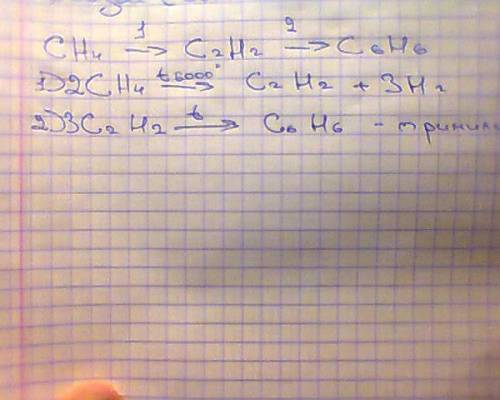 CH4 1→ C2H2 2→ C6H6
1) 2CH4 t 6000° → C2H2 + 3H2
2) 3C2H2 t → C6H6 -